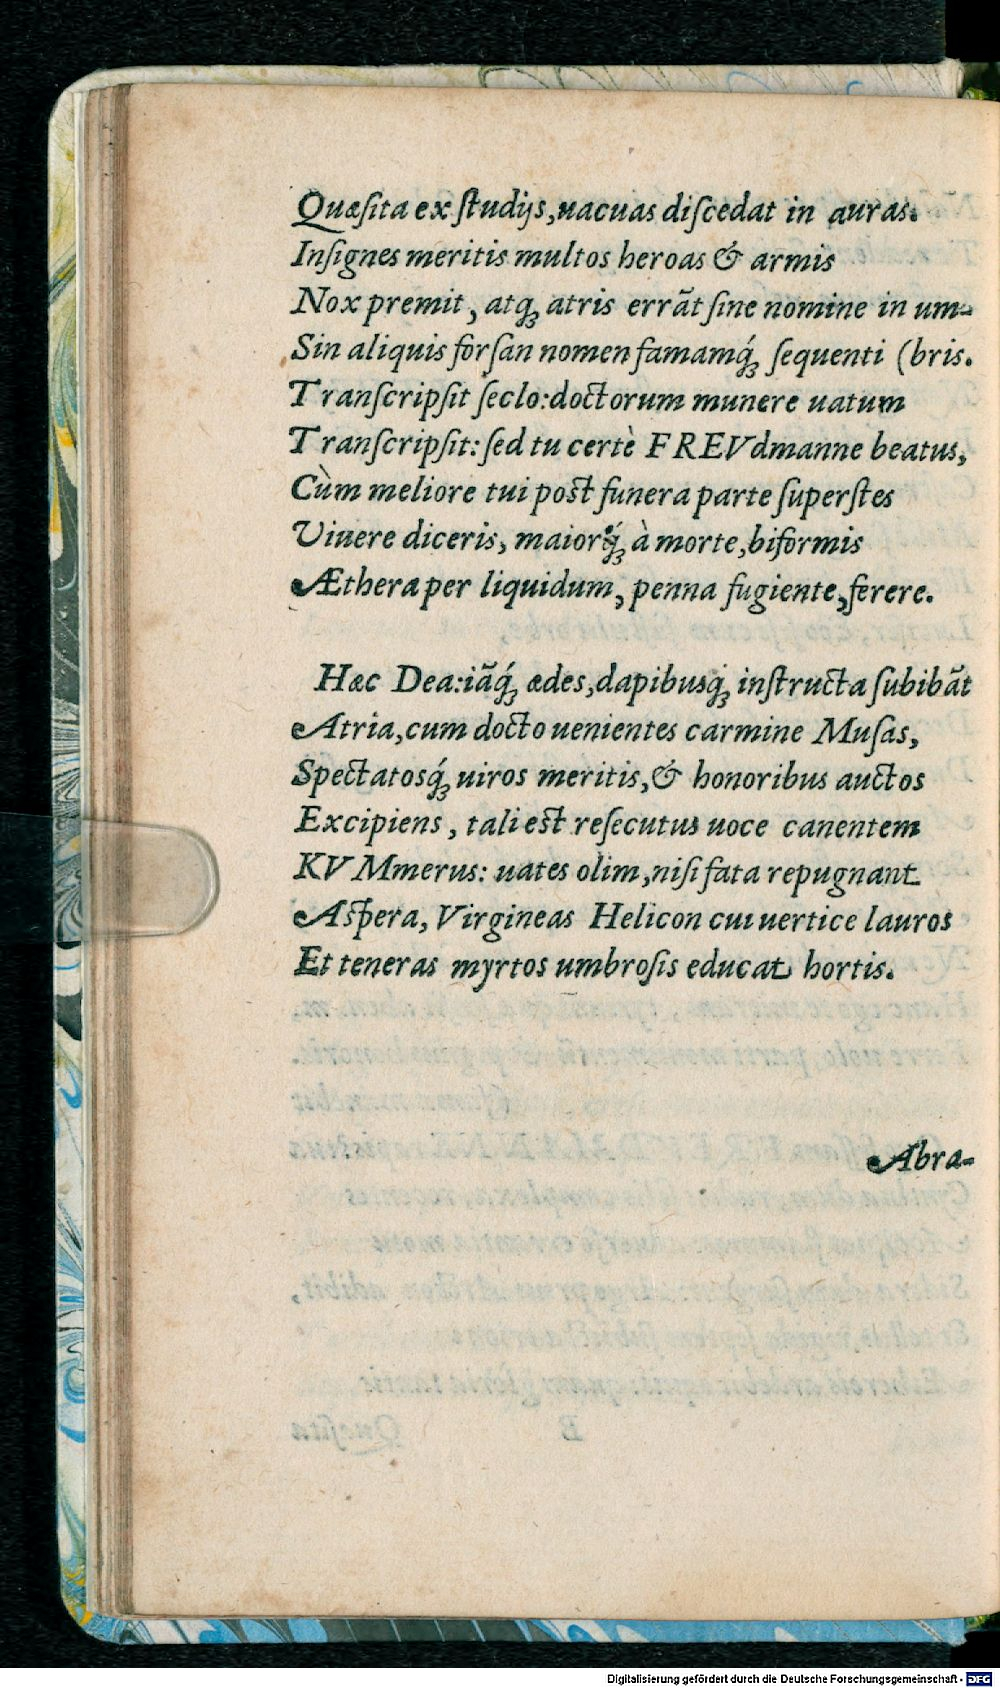 Quæſita ex ſtudijs, uacuas diſcedat in auras.
Inſignes meritis multos heroas & armis
Nox premit, atq; atris errãt ſine nomine in um-
Sin aliquis forſan nomen famamq́; ſequenti (bris.
Tranſcripſit ſeclo: doctorum munere uatum
Tranſcripſit: ſed tu certè FREVdmanne beatus,
Cùm meliore tui poſt funera parte ſuperſtes
Viuere diceris, maiorq́; à morte, biformis
Æthera per liquidum, penna fugiente, ferere.
Hæc Dea: iãq́; ædes, dapibusq́; inſtructa ſubibãt
Atria, cum docto uenientes carmine Muſas,
Spectatosq́; uiros meritis, & honoribus auctos
Excipiens, tali eſt reſecutus uoce canentem
KVMmerus: uates olim, niſi fata repugnant
Aſpera, Virgineas Helicon cui uertice lauros
Et teneras myrtos umbroſis educat hortis.
Abra-
Digitalisierung gefördert durch die Deutsche Forschungsgemeinschaft - DFG